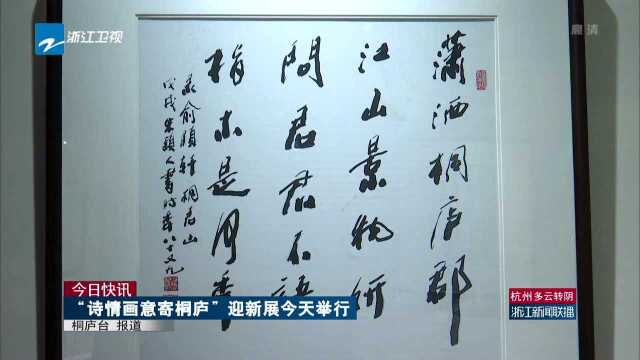 浙江卫视
高清
瀟洒桐庐郡
江山景物妍
問君君不語
指木是何年
录俞颐轩桐君山
戊戌朱颖人書时年八十又九
今日快讯
“诗情画意寄桐庐”迎新展今天举行
桐庐台 报道
杭州多云转阴
浙江新闻联播